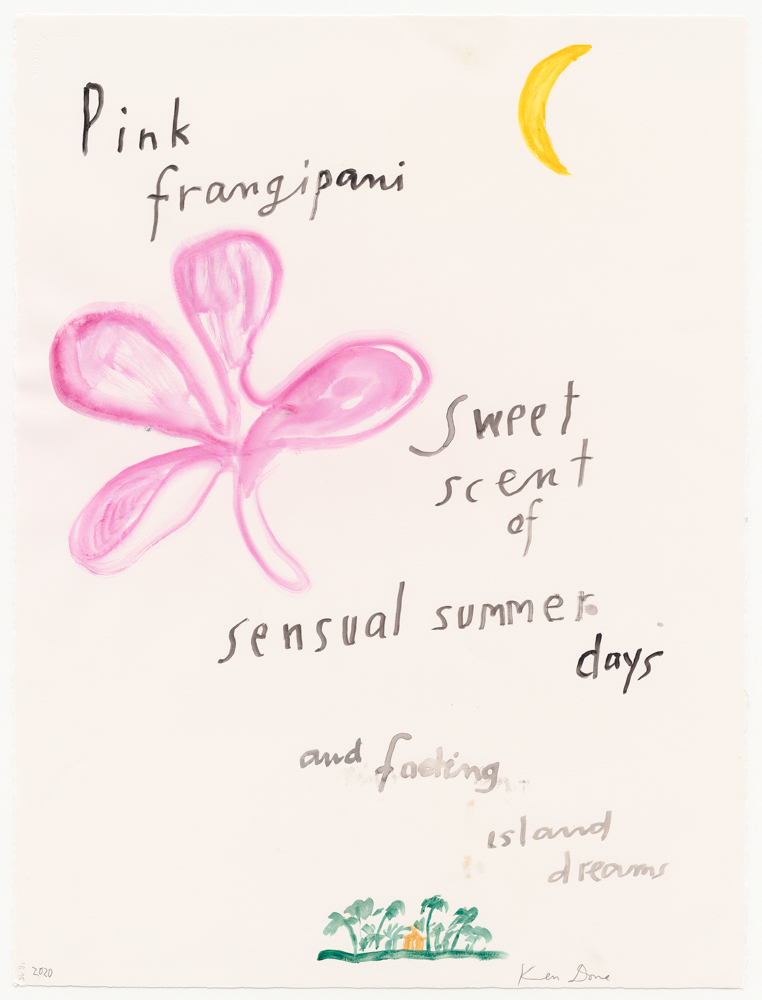 Pink
frangipani
sweet
scent
of
sensual summer
days
and fading
island
dreams
2020
Ken Done